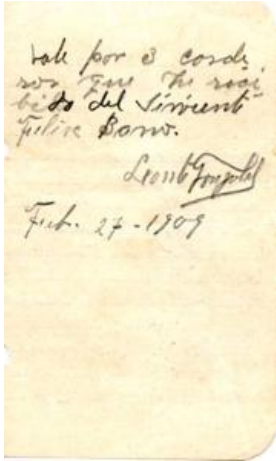 Vale por 3 corde
ros que he reci
bido del Sirvient
Felix Bano.
Feb. 27-1909